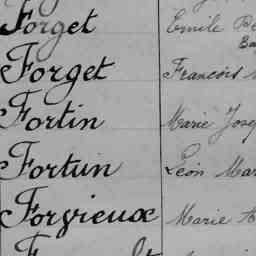 Forget Emile
Forget François
Fortin Marie
Fortuin Léon
Forvieux Marie